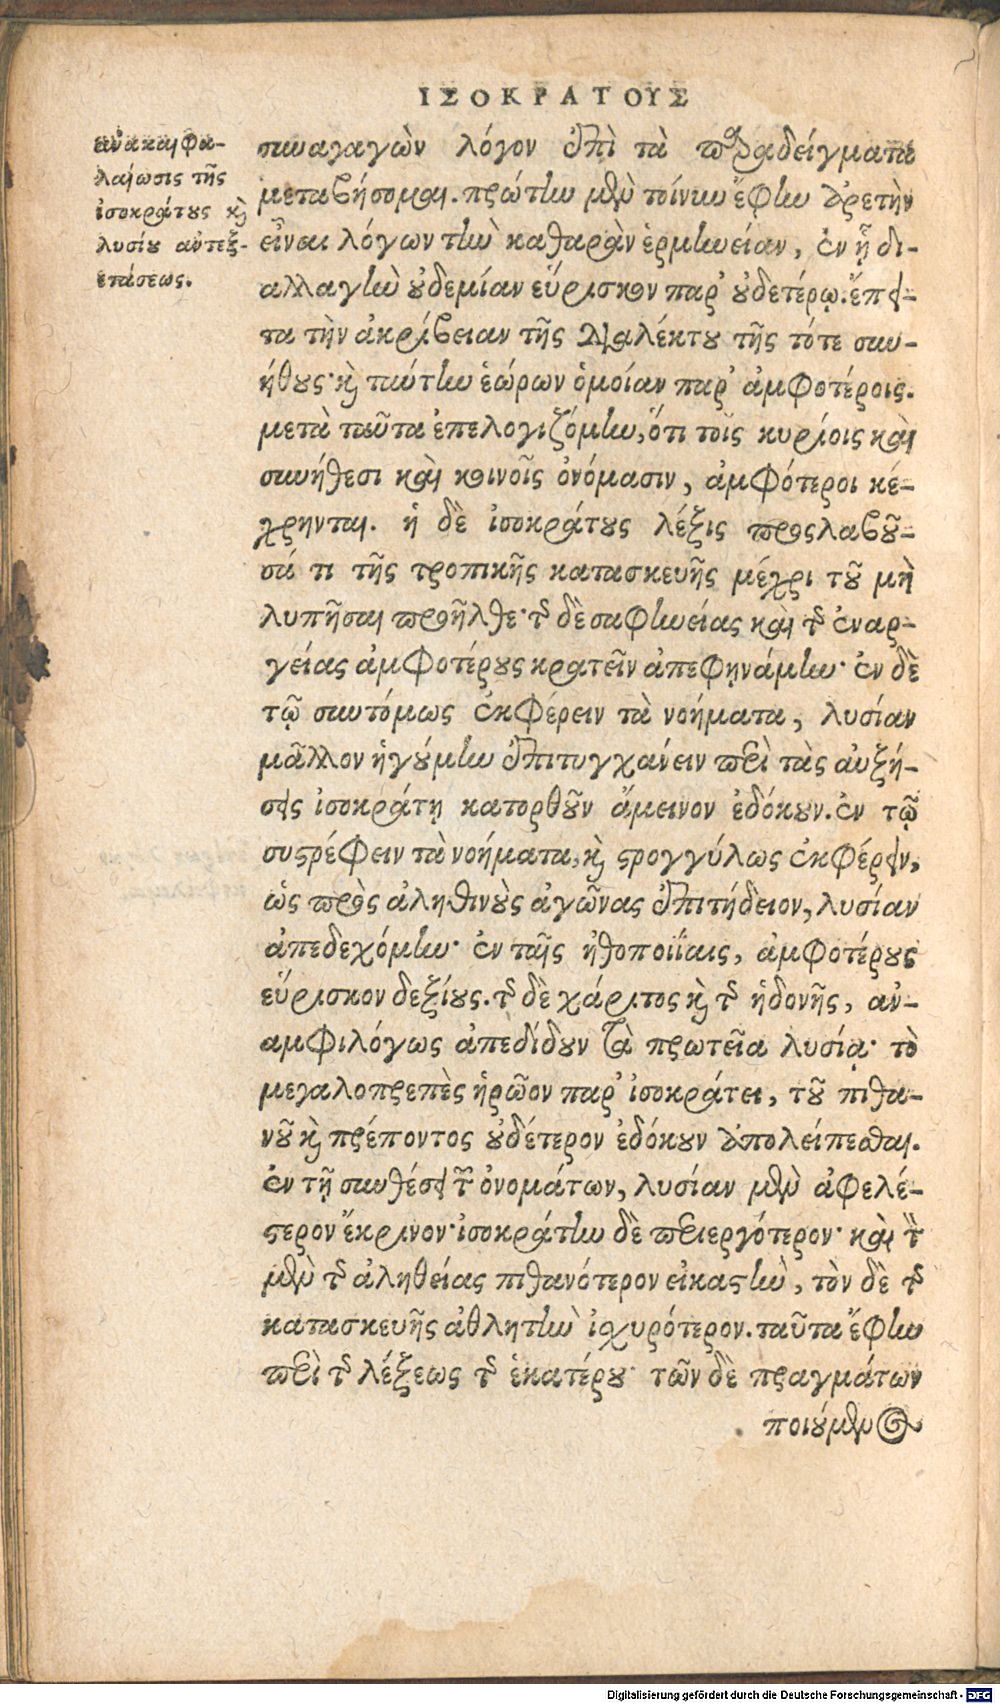 ΙΣΟΚΡΑΤΟΥΣ
ανακαιφα-
λαίωσις τῆς
ἰσοκράτους καὶ
λυσίου αὐτεξ-
ετάσεως.
συναγαγὼν λόγον ἐπὶ τὰ παραδείγματα
μεταβήσομαι. πρώτην μὲν τοίνυν ἔφην ἀρετὴν
εἶναι λόγων τὴν καθαρὰν ἑρμηνείαν, ἐν ᾗ δι-
αλλαγὴν οὐδεμίαν εὕρισκον παρ' οὐδετέρῳ. ἔπει-
τα τὴν ἀκρίβειαν τῆς διαλέκτου τῆς τότε συν-
ήθους· καὶ ταύτην ἑώρων ὁμοίαν παρ' ἀμφοτέροις.
μετὰ ταῦτα ἐπελογιζόμην, ὅτι τοῖς κυρίοις καὶ
συνήθεσι καὶ κοινοῖς ὀνόμασιν, ἀμφότεροι κέ-
χρηνται. ἡ δὲ ἰσοκράτους λέξις προςλαβοῦ-
σά τι τῆς τροπικῆς κατασκευῆς μέχρι τοῦ μὴ
λυπῆσαι προῆλθε· τῆς δὲ σαφηνείας καὶ τῆς ἐναρ-
γείας ἀμφοτέρους κρατεῖν ἀπεφηνάμην· ἐν δὲ
τῷ συντόμως ἐκφέρειν τὰ νοήματα, λυσίαν
μᾶλλον ἡγούμην ἐπιτυγχάνειν περὶ τὰς αὐξή-
σεις ἰσοκράτη κατορθοῦν ἄμεινον ἐδόκουν. ἐν τῷ
συστρέφειν τὰ νοήματα, καὶ στρογγύλως ἐκφέρειν,
ὡς πρὸς ἀληθινοὺς ἀγῶνας ἐπιτήδειον, λυσίαν
ἀπεδεχόμην· ἐν ταῖς ἠθοποιΐαις, ἀμφοτέρους
εὕρισκον δεξιούς. τῆς δὲ χάριτος καὶ τῆς ἡδονῆς, ἀν-
αμφιλόγως ἀπεδίδουν τὰ πρωτεῖα λυσίᾳ· τὸ
μεγαλοπρεπὲς ἡρῶον παρ' ἰσοκράτει, τοῦ πιθα-
νοῦ καὶ πρέποντος οὐδέτερον ἐδόκουν ἀπολείπεσθαι.
ἐν τῇ συνθέσει τῶν ὀνομάτων, λυσίαν μὲν ἀφελέ-
στερον ἔκρινον· ἰσοκράτην δὲ περιεργότερον· καὶ τὸν
μὲν τῆς ἀληθείας πιθανότερον εἰκαστὴν, τὸν δὲ τῆς
κατασκευῆς ἀθλητὴν ἰσχυρότερον. ταῦτα ἔφην
περὶ τῆς λέξεως τῆς ἑκατέρου· τῶν δὲ πραγμάτων
ποιούμενος
Digitalisierung gefördert durch die Deutsche Forschungsgemeinschaft - DFG